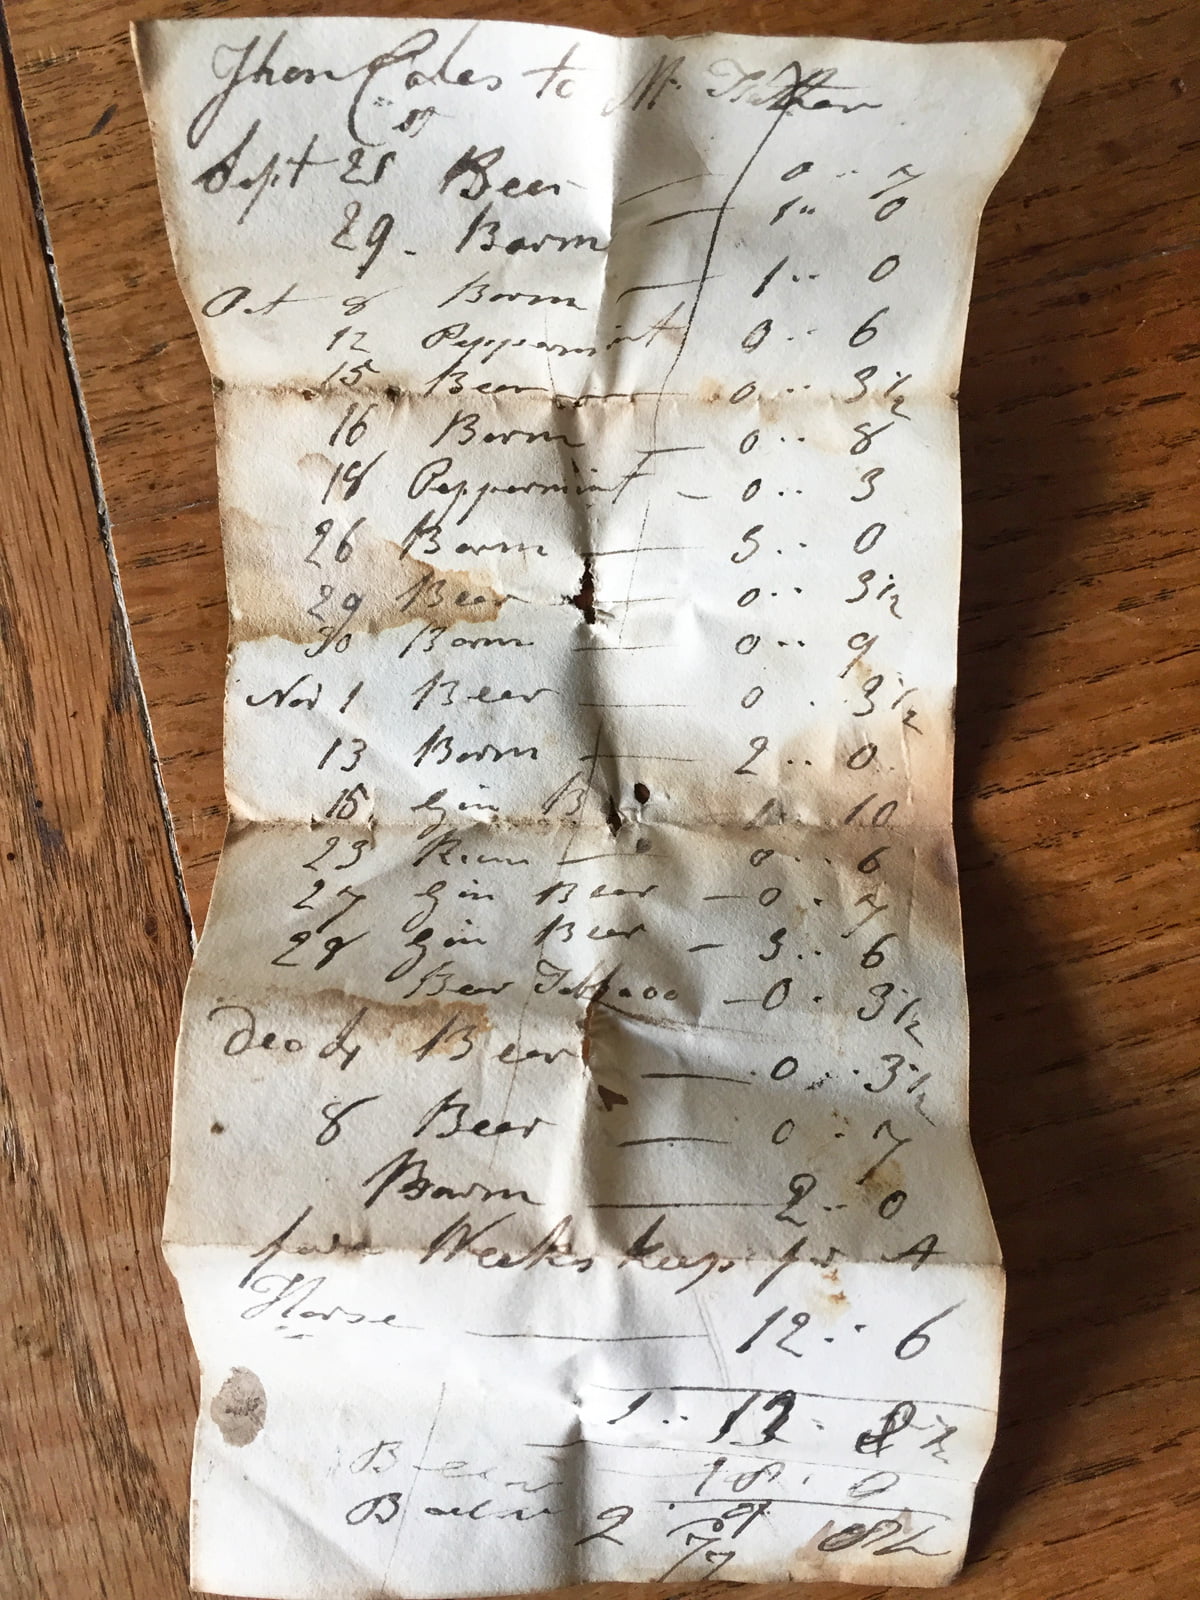 Jhon Coles to Mr
Sept 28 Beer 0 .. 7
29 . Barm 1 .. 0
Oct 8 Barm 1 .. 0
12 Peppermint 0 .. 6
15 Beer 0 .. 3 1/2
16 Barm 0 .. 8
18 Peppermint 0 .. 3
26 Barm 3 .. 0
29 Beer 0 .. 3 1/2
30 Barm 0 .. 9
Nov 1 Beer 0 . 3 1/2
13 Barm 2 .. 0
15 Gin B 10
23 Rum 0 .. 6
27 Gin Beer 0 . 7
28 Gin Beer 3 .. 6
Beer Tobbaco 0 . 3 1/2
Dec 4 Beer 0 .. 3 1/2
8 Beer 0 . 7
Barm 2 .. 0
Weeks keep for A
Horse 12 .. 6
1 .. 13 . 1/2
18 . 0
2